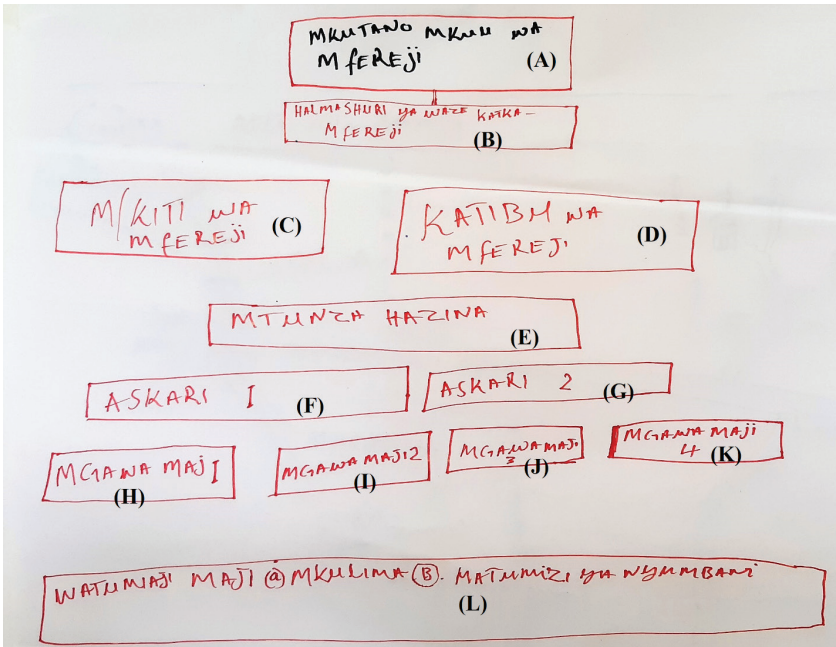 MKUTANO MKUU WA
MFEREJI (A)
HALMASHURI YA WAZE KATKA-
MFEREJI (B)
M/KITI WA
MFEREJI (C)
KATIBU WA
MFEREJI (D)
MTUNZA HAZINA
(E)
ASKARI I (F)
ASKARI 2 (G)
MGAWA MAJI
(H)
MGAWAMAJI2
(I)
MGAWAMAJI
3 (J)
MGAWA MAJI
4 (K)
WATUMIAJI MAJI @ MKULIMA (B). MATUMIZI YA NYUMBANI
(L)